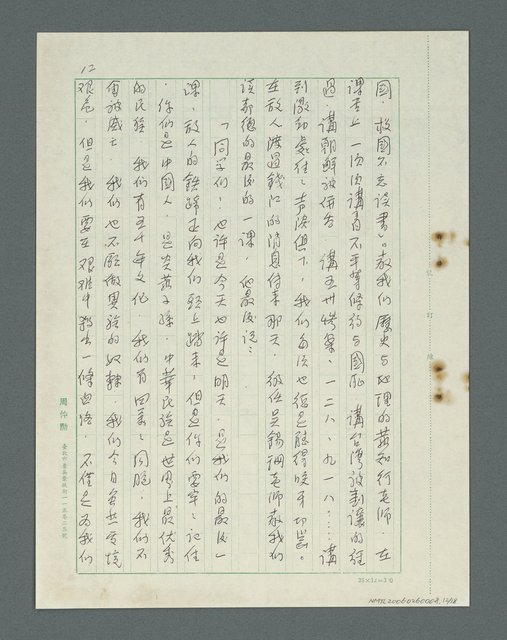 國,救國不忘讀書」。教我們歷史與地理的黃知行老師,在
課堂上一次次講着不平等條約與國恥,講台灣被割讓的經
過,講朝鮮被併吞,講五卅慘案,一二八、九一八……講
到激動處往往声淚俱下,我們每次也總是聽得咬牙切齒。
在敵人渡過錢江的消息傳來那天,級任吳錫澗老師教我們
說都德的最後的一課,他最後說:
「同学們!也許是今天也許是明天,是我們的最後一
課,敵人的鉄蹄正向我們頭上踏來,但是你們要牢牢記住
,你們是中國人,是炎黃子孫,中華民族是世界上最优秀
的民族,我們有五千年文化,我們有四萬萬同胞,我們不
會被威亡,我們也不願做異族的奴隸,我們今日虽然処境
艰危,但是我們要在艰难中殺出一條血路,不僅是為我們
12
周仲勛
25×12=300
記 訂 線
NMTL20060260008,12/18